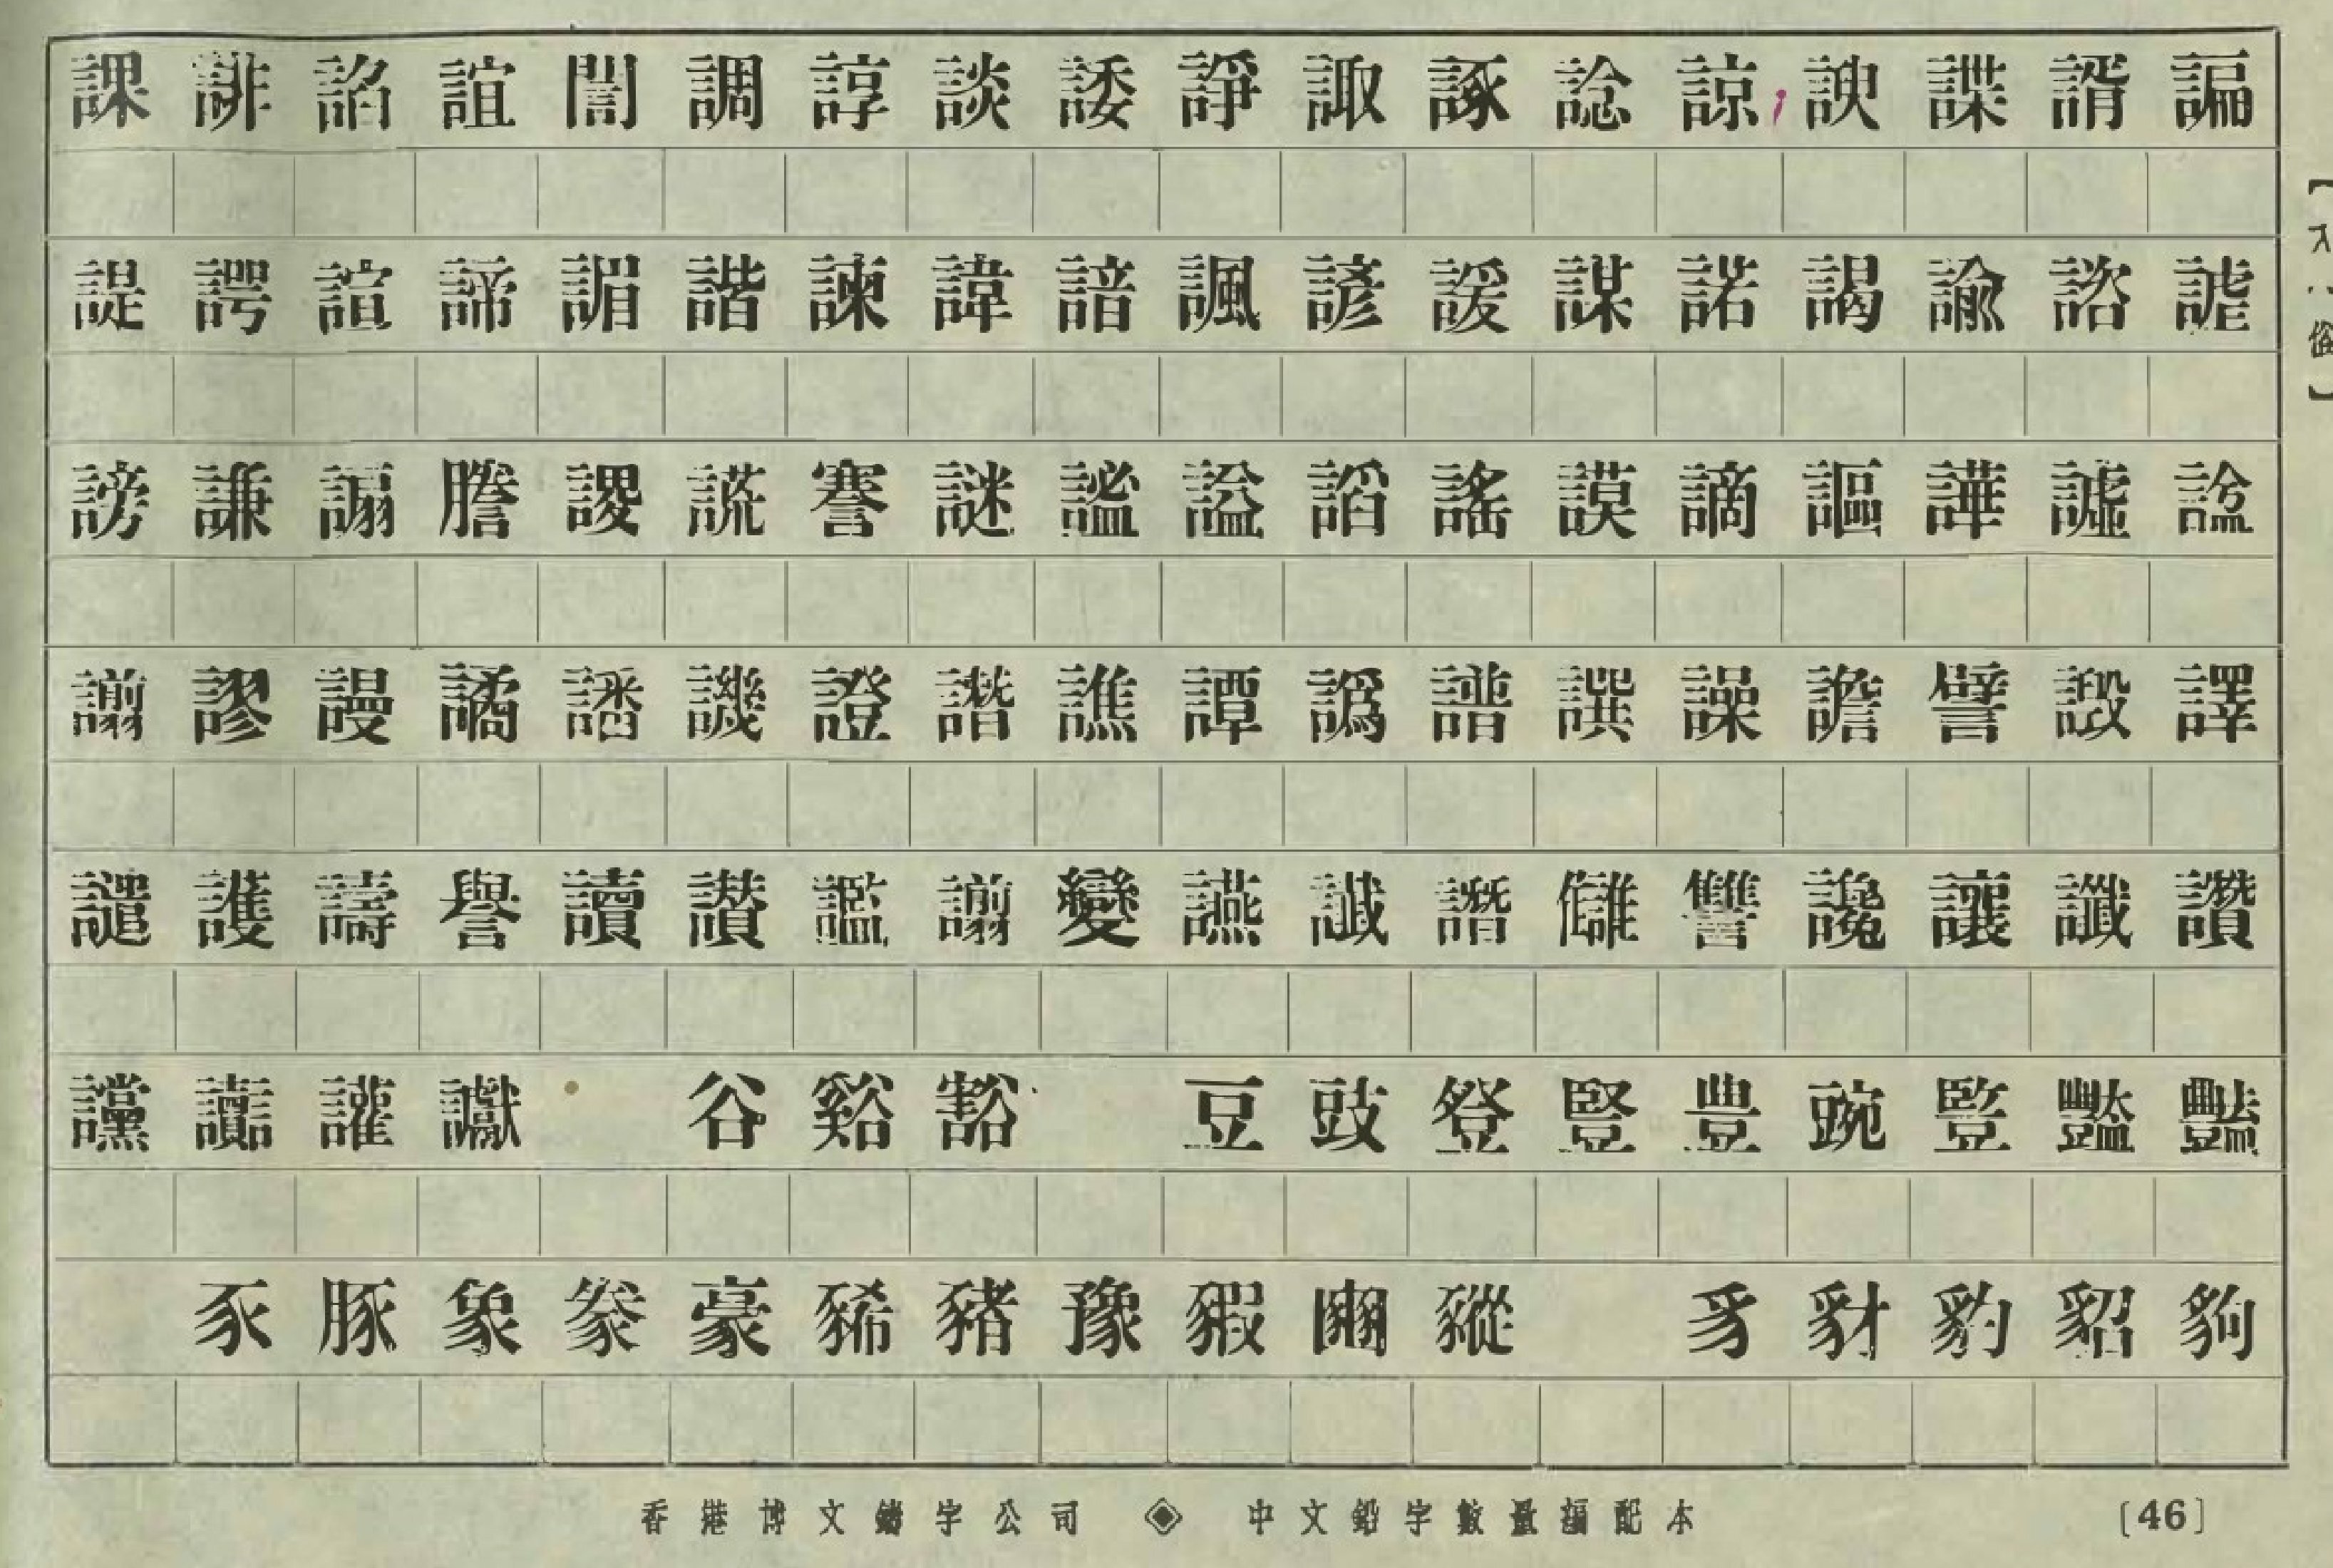 課誹諂誼誾調諄談諉諍諏諑諗諒諛諜諝諞
諟諤諠諦諿諧諫諱諳諷諺諼謀諾謁諭諮謔
謗謙謆謄謖謊謇謎謐謚謟謠謨謫謳譁譃諡
謭謬謾譎譒譏證譖譙譚譌譜譔譟譫譬譭譯
譴護譸譽讀讚讇譾變讌讖譖讎讐讒讓讖讚
讜讟讙讞 谷谿豁 豆豉豋豎豊豌豎豔豔
豕豚象豢豪豨豬豫豭豳豵 豸豺豹貂豿
香港博文鑄字公司 ◈ 中文鉛字數量編配本 [46]